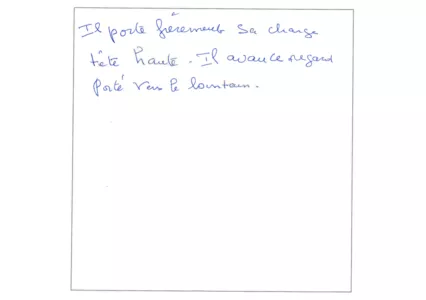 Il porte fièrement sa charge
tête haute. Il avance regard
porté vers le lointain.